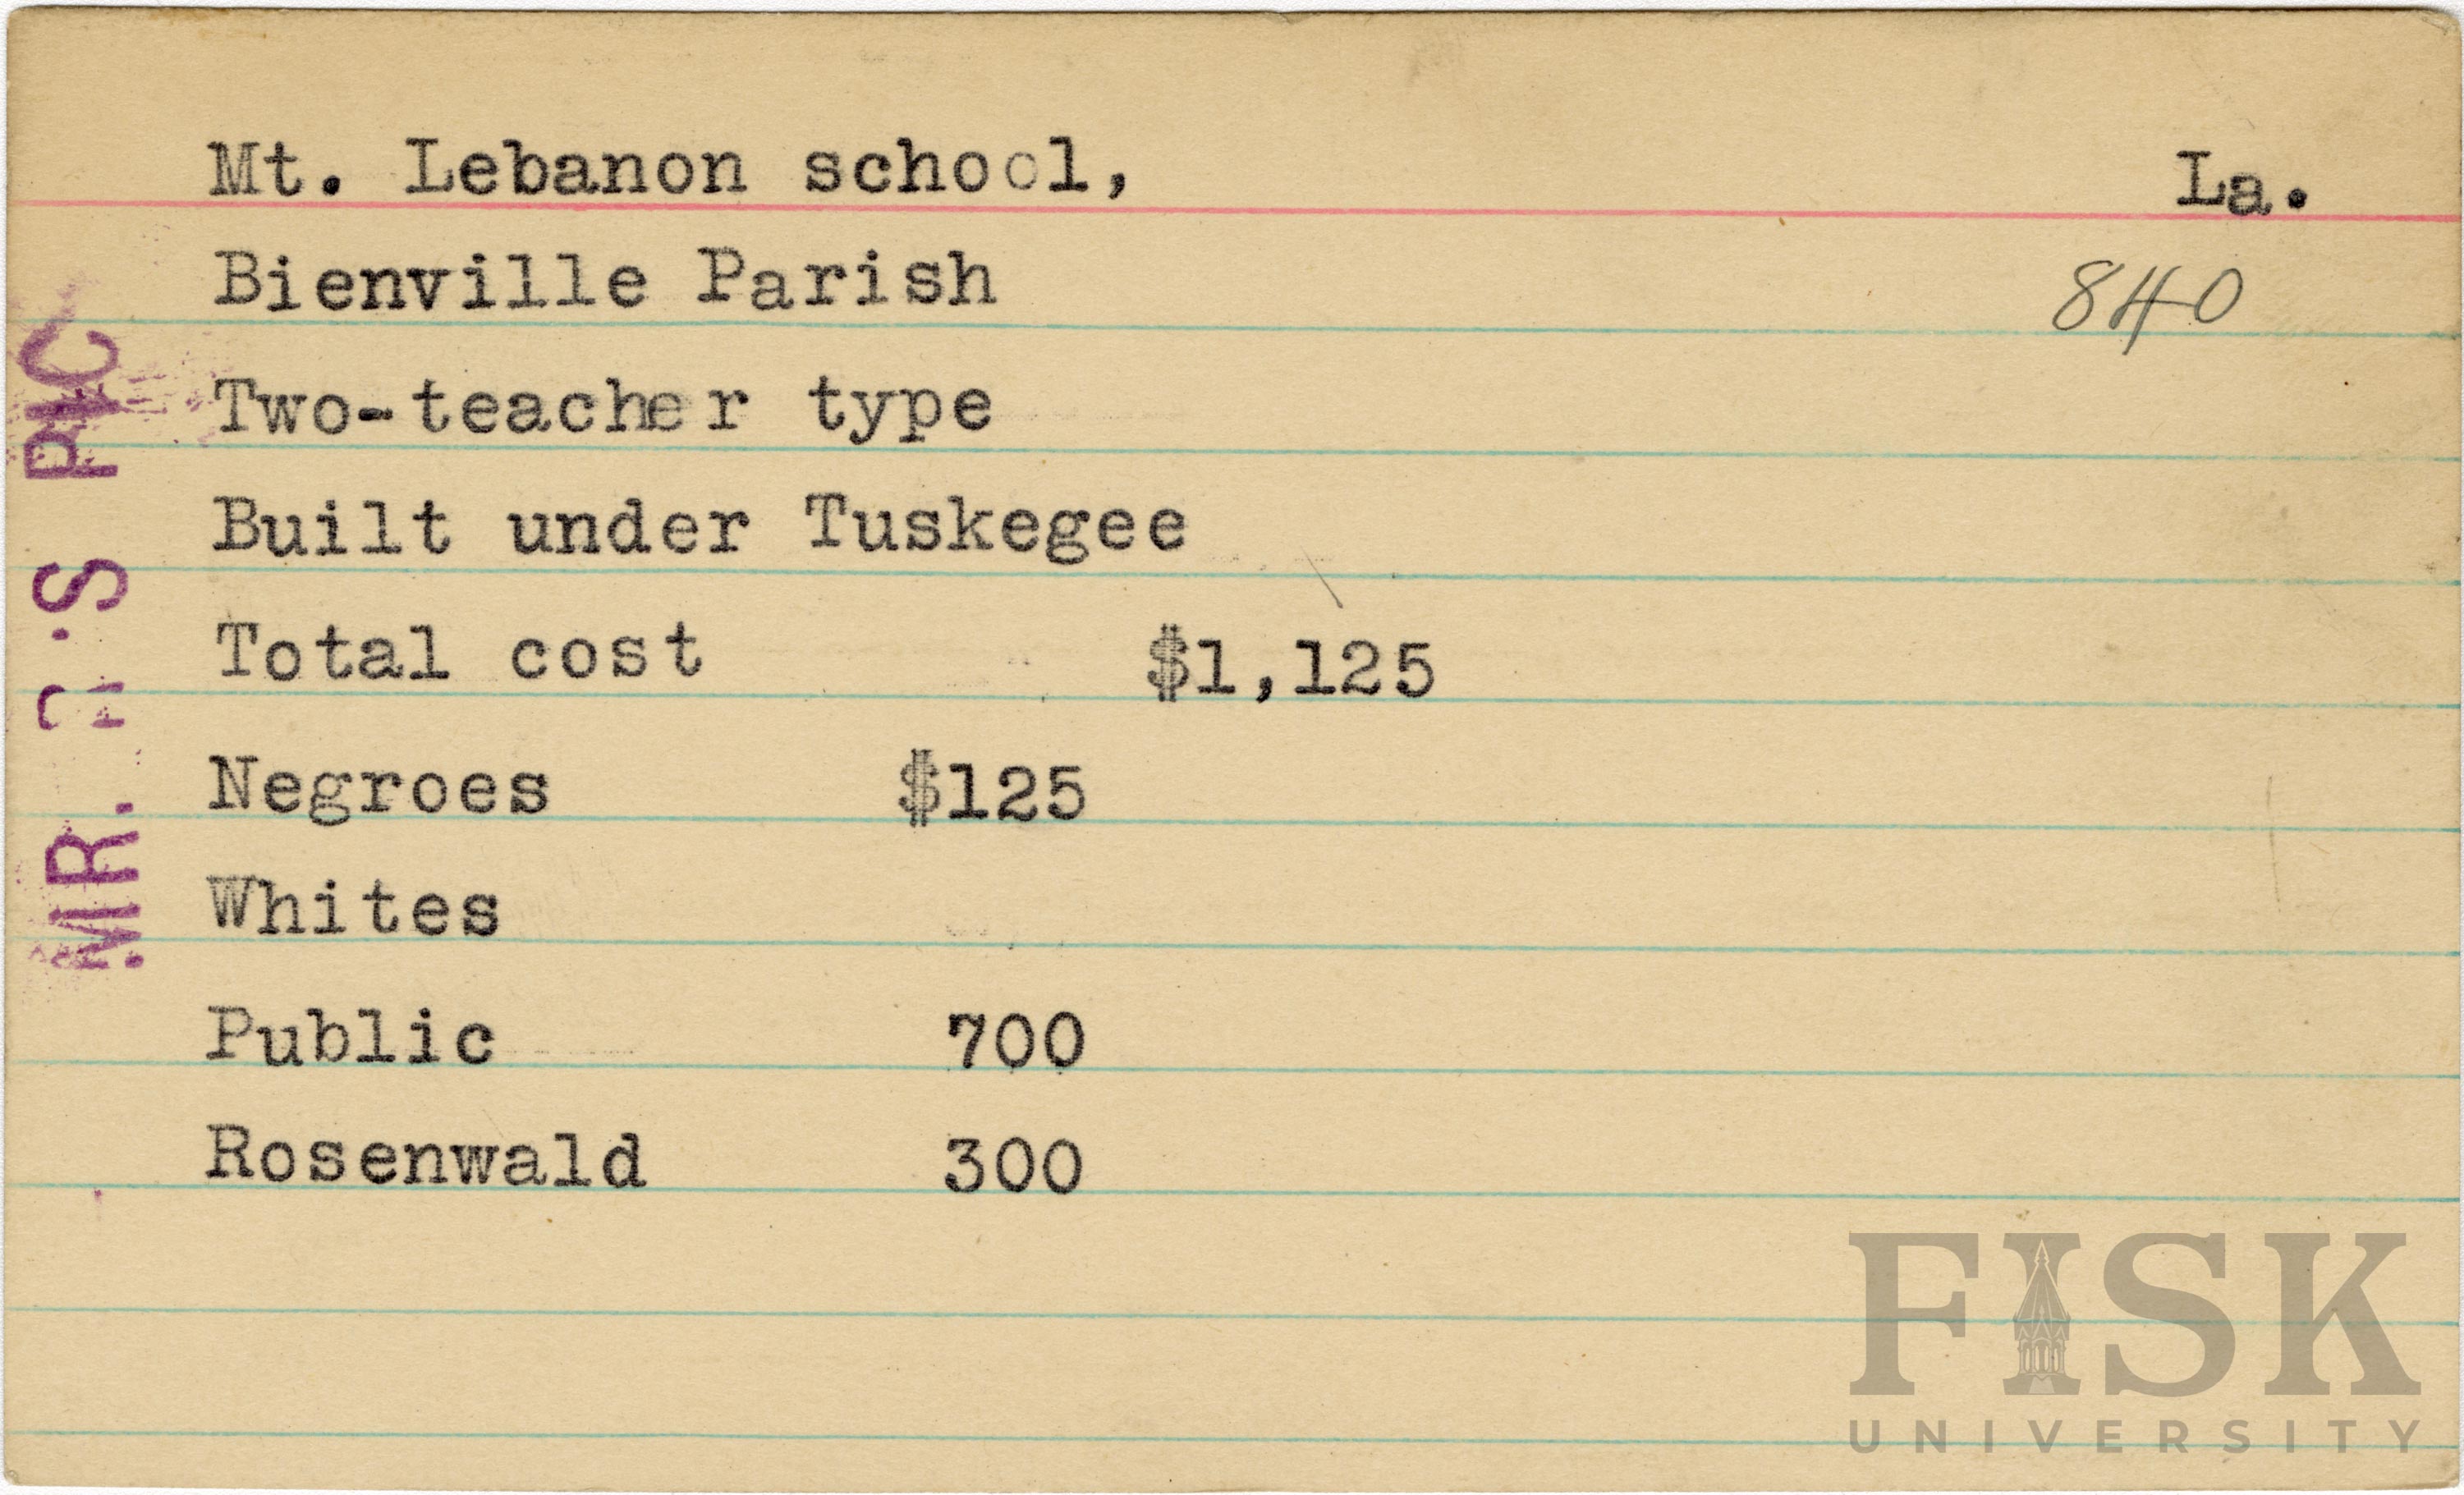 Mt. Lebanon school, La.
Bienville Parish 840
Two-teacher type
Built under Tuskegee
Total cost $1,125
Negroes $125
Whites
Public 700
Rosenwald 300
MR.
FISK
UNIVERSITY